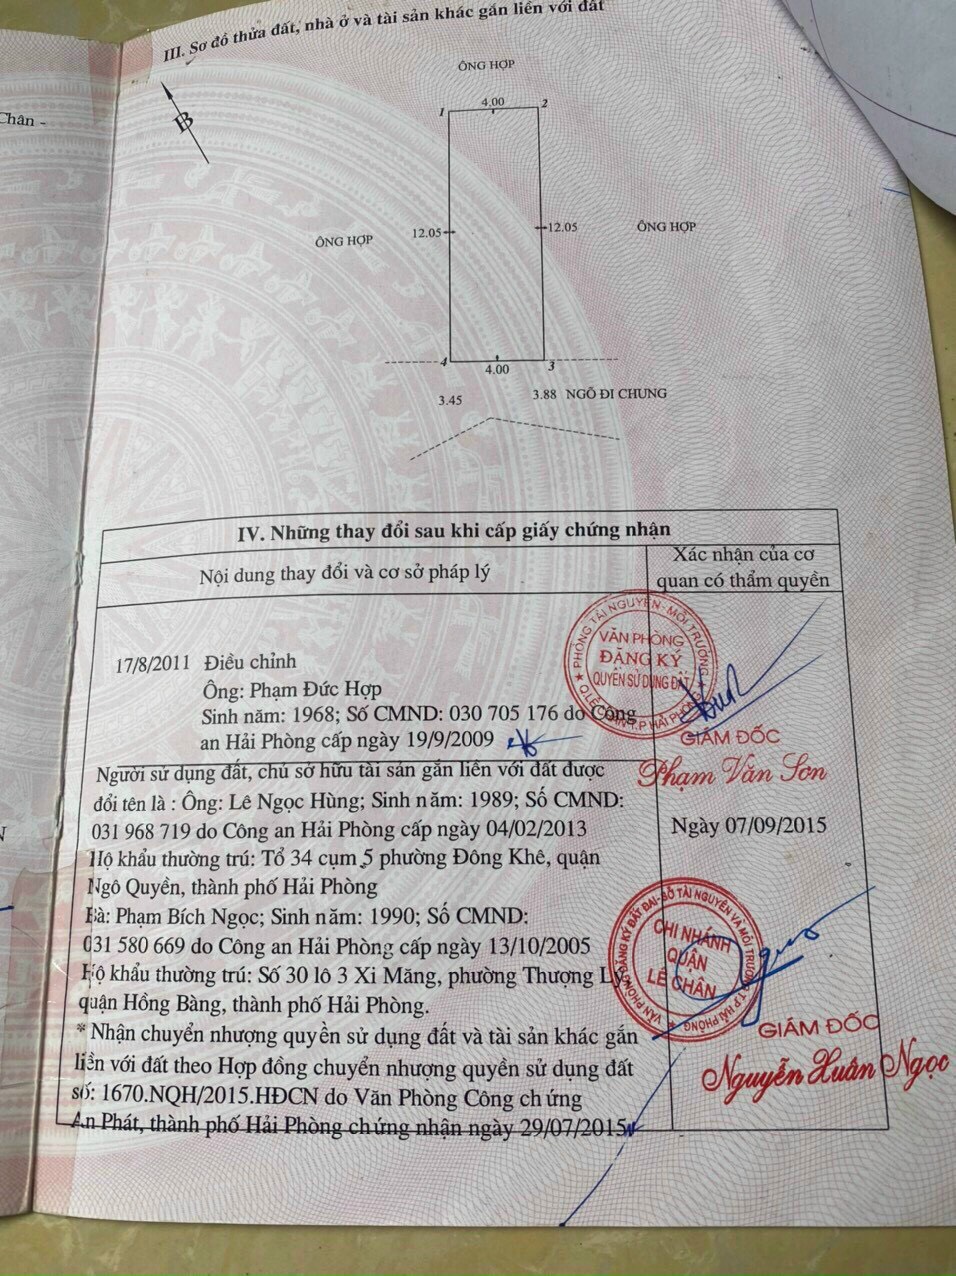 Chân -
III. Sơ đồ thửa đất, nhà ở và tài sản khác gắn liền với đất
B
ÔNG HỢP
1 4.00 2
ÔNG HỢP 12.05 12.05 ÔNG HỢP
4 4.00 3
3.45 3.88 NGÕ ĐI CHUNG
IV. Những thay đổi sau khi cấp giấy chứng nhận
Nội dung thay đổi và cơ sở pháp lý
Xác nhận của cơ
quan có thẩm quyền
17/8/2011 Điều chỉnh
Ông: Phạm Đức Hợp
Sinh năm: 1968; Số CMND: 030 705 176 do Công
an Hải Phòng cấp ngày 19/9/2009
PHÒNG TÀI NGUYÊN - MÔI TRƯỜNG
VĂN PHÒNG
ĐĂNG KÝ
QUYỀN SỬ DỤNG ĐẤT
Q.LÊ CHÂN T.P HẢI PHÒNG
GIÁM ĐỐC
Phạm Văn Sơn
Người sử dụng đất, chủ sở hữu tài sản gắn liền với đất được
đổi tên là : Ông: Lê Ngọc Hùng; Sinh năm: 1989; Số CMND:
031 968 719 do Công an Hải Phòng cấp ngày 04/02/2013
Hộ khẩu thường trú: Tổ 34 cụm 5 phường Đông Khê, quận
Ngô Quyền, thành phố Hải Phòng
Bà: Phạm Bích Ngọc; Sinh năm: 1990; Số CMND:
031 580 669 do Công an Hải Phòng cấp ngày 13/10/2005
Hộ khẩu thường trú: Số 30 lô 3 Xi Măng, phường Thượng Lý,
quận Hồng Bàng, thành phố Hải Phòng.
* Nhận chuyển nhượng quyền sử dụng đất và tài sản khác gắn
liền với đất theo Hợp đồng chuyển nhượng quyền sử dụng đất
số: 1670.NQH/2015.HĐCN do Văn Phòng Công chứng
An Phát, thành phố Hải Phòng chứng nhận ngày 29/07/2015
Ngày 07/09/2015
VĂN PHÒNG ĐĂNG KÝ ĐẤT ĐAI - SỞ TÀI NGUYÊN VÀ MÔI TRƯỜNG T.P HẢI PHÒNG
CHI NHÁNH
QUẬN
LÊ CHÂN
GIÁM ĐỐC
Nguyễn Xuân Ngọc